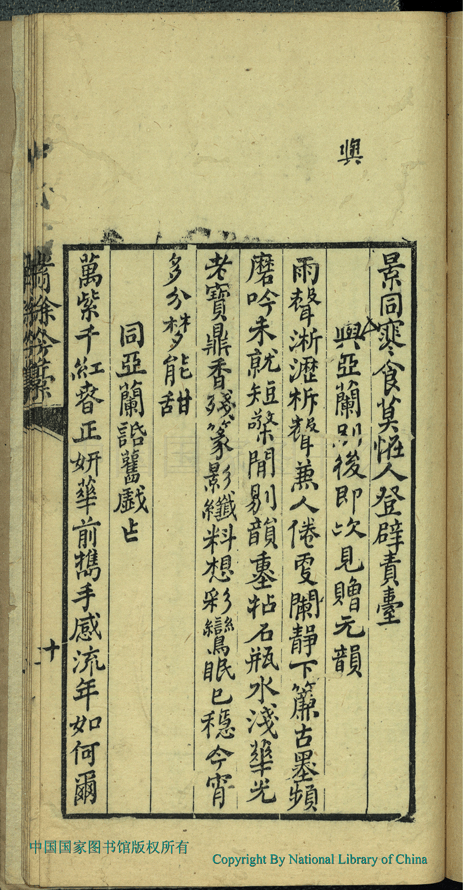 與
景同寒食莫恠人登避責臺
與亞蘭別後即次見贈元韻
雨聲淅瀝柝聲兼人倦更闌靜下簾古墨頻
磨吟未就短檠閒剔韻重拈石瓶水淺華光
老寶鼎香殘篆影纖料想彩鸞眠已穩今宵
多分梦能甜
同亞蘭話舊戲占
萬紫千紅春正妍華前擕手感流年如何爾
十
中国国家图书馆版权所有
Copyright By National Library of China